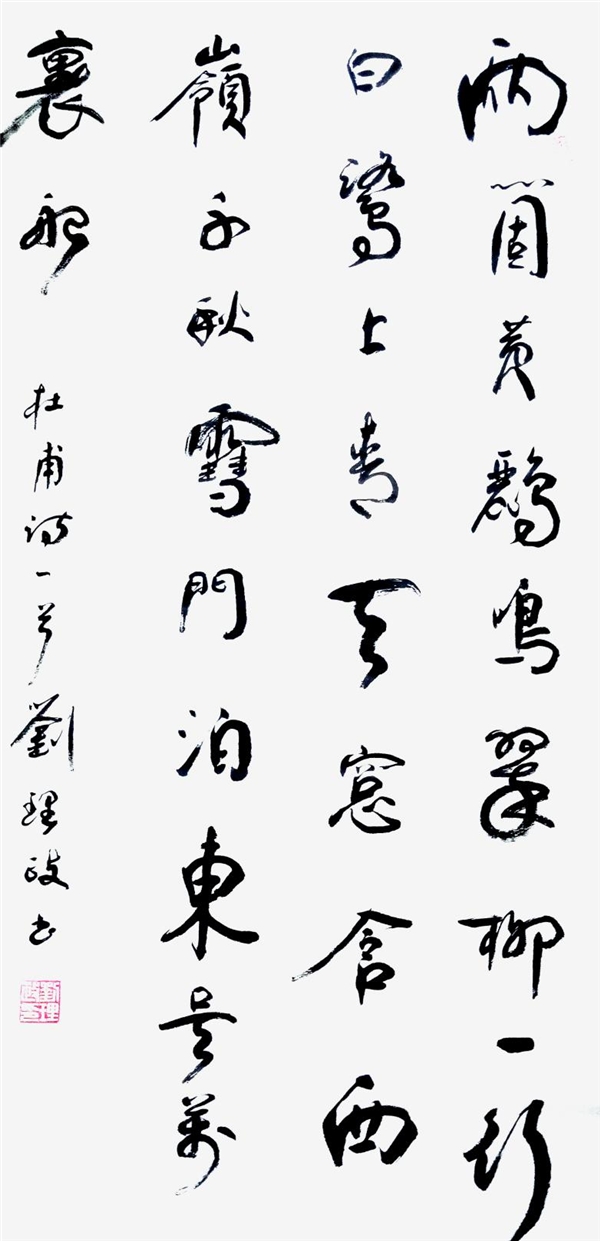 兩箇黃鸝鳴翠柳一行
白鷺上青天窓含西
嶺千秋雪門泊東吳萬
裏船
杜甫诗一首劉理政书